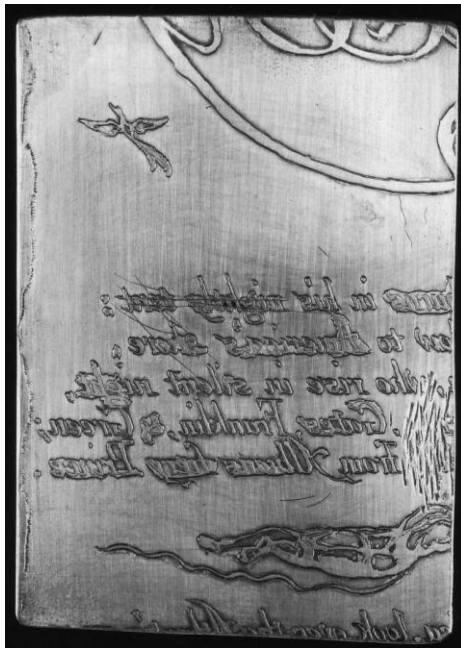 urns in his nightly tent;
ow to America's shore:
who rise in silent night,
Gates, Franklin, & Green;
from Albions fiery Prince.
look over the